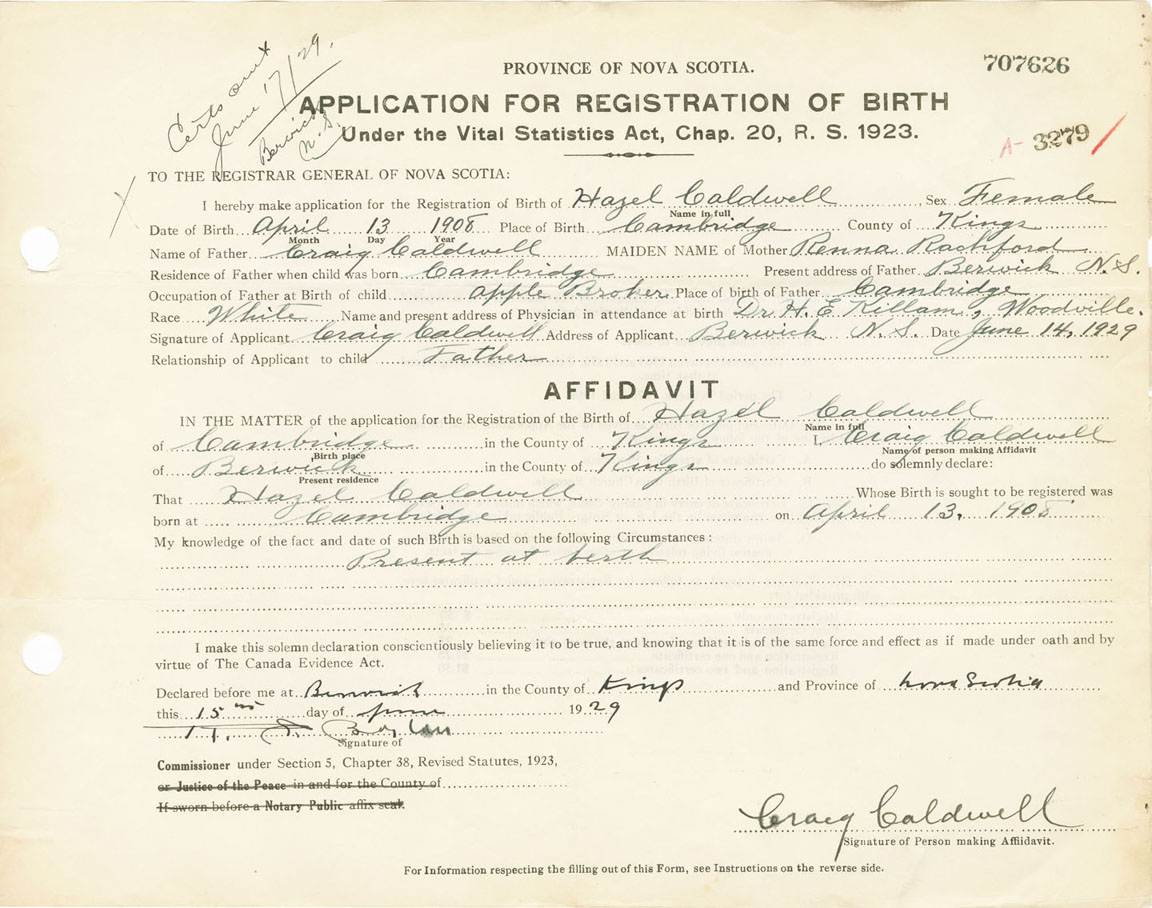 Certs out
June 17/29.
Berwick
N.S.
PROVINCE OF NOVA SCOTIA.
707626
APPLICATION FOR REGISTRATION OF BIRTH
Under the Vital Statistics Act, Chap. 20, R. S. 1923.
A- 3279 /
X
TO THE REGISTRAR GENERAL OF NOVA SCOTIA:
I hereby make application for the Registration of Birth of Hazel Caldwell, Sex Female
Name in full
Date of Birth April 13 1908 Place of Birth Cambridge County of Kings
Month Day Year
Name of Father Craig Caldwell MAIDEN NAME of Mother Renna Rachford
Residence of Father when child was born Cambridge Present address of Father Berwick N.S.
Occupation of Father at Birth of child Apple Broker Place of birth of Father Cambridge
Race White Name and present address of Physician in attendance at birth Dr. H. E. Killam, Woodville.
Signature of Applicant Craig Caldwell Address of Applicant Berwick N.S. Date June 14, 1929
Relationship of Applicant to child Father
AFFIDAVIT
IN THE MATTER of the application for the Registration of the Birth of Hazel Caldwell
Name in full
of Cambridge in the County of Kings I, Craig Caldwell
Birth place
Name of person making Affidavit
of Berwick in the County of Kings do solemnly declare:
Present residence
That Hazel Caldwell Whose Birth is sought to be registered was
born at Cambridge on April 13, 1908
My knowledge of the fact and date of such Birth is based on the following Circumstances:
Present at berth
I make this solemn declaration conscientiously believing it to be true, and knowing that it is of the same force and effect as if made under oath and by
virtue of The Canada Evidence Act.
Declared before me at Berwick in the County of Kings and Province of Nova Scotia
this 15 day of June 1929
Signature of
Commissioner under Section 5, Chapter 38, Revised Statutes, 1923,
or Justice of the Peace in and for the County of
If sworn before a Notary Public affix seal.
Craig Caldwell
Signature of Person making Affiidavit.
For Information respecting the filling out of this Form, see Instructions on the reverse side.